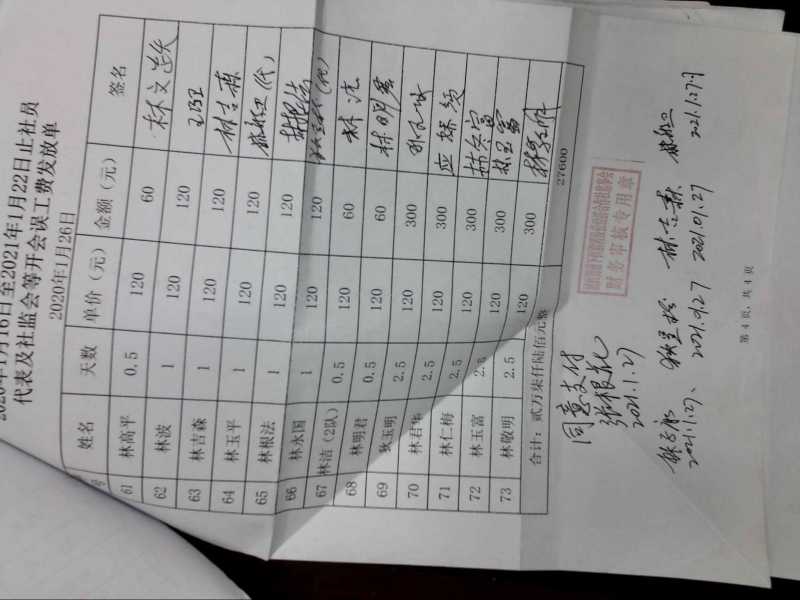 2020年1月16日至2021年1月22日止社员
代表及社监会等开会误工费发放单
2020年1月26日
号 姓名 天数 单价（元） 金额（元） 签名
61 林高平 0.5 120 60
62 林波 1 120 120
63 林吉森 1 120 120 林吉森
64 林玉平 1 120 120 (代)
65 林根法 1 120 120
66 林永国 1 120 120 (代)
67 林洁（2队） 0.5 120 60 林洁
68 林明君 0.5 120 60 林明君
69 狄玉明 2.5 120 300
70 林君华 2.5 120 300
71 林仁梅 2.5 120 300
72 林玉富 2.5 120 300 林玉富
73 林敬明 2.5 120 300
合计：贰万柒仟陆佰元整 27600
财务审核专用章
同意支付
张根花
2021.1.27
2021.1.27、 2021.01.27 2021.1.27
林吉森
第 4 页，共 4 页